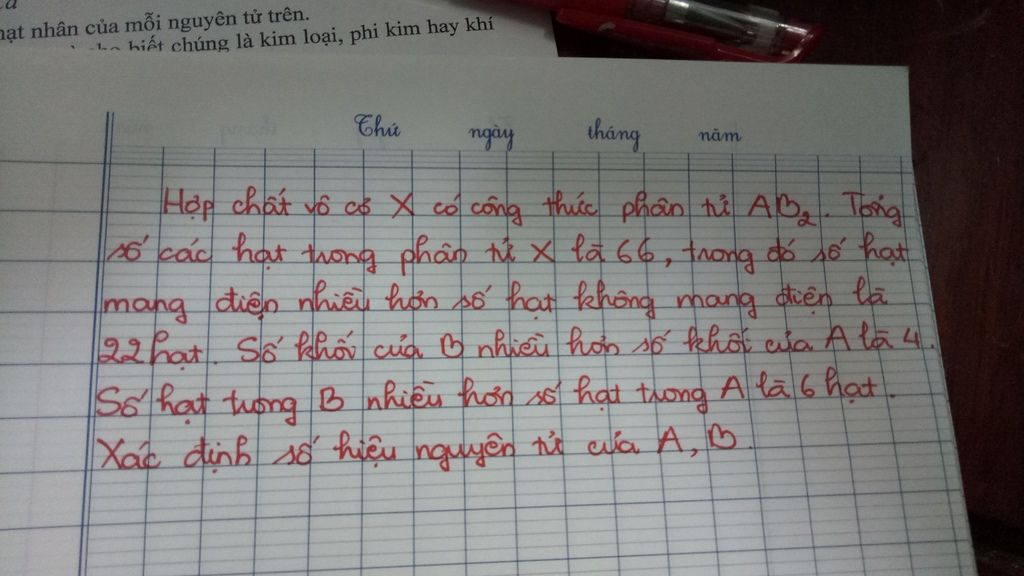 hạt nhân của mỗi nguyên tử trên.
cho biết chúng là kim loại, phi kim hay khí
Thứ ngày tháng năm
Hợp chất vô cơ X có công thức phân tử AB₂. Tổng
số các hạt trong phân tử X là 66, trong đó số hạt
mang điện nhiều hơn số hạt không mang điện là
22 hạt. Số khối của B nhiều hơn số khối của A là 4.
Số hạt trong B nhiều hơn số hạt trong A là 6 hạt.
Xác định số hiệu nguyên tử của A, B.